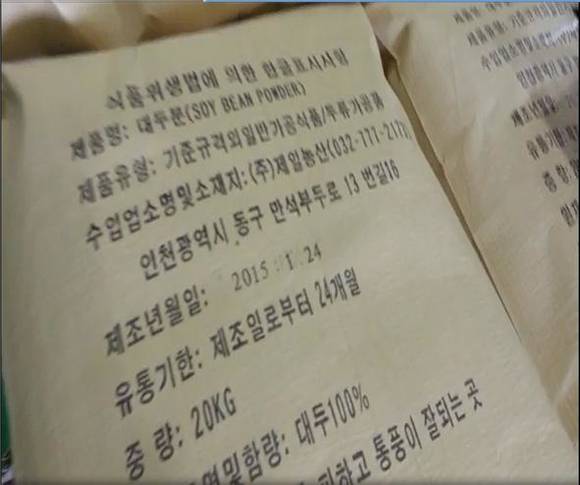 식품위생법에 의한 한글표시사항
제품명: 대두분(SOY BEAN POWDER)
제품유형: 기준규격외일반가공식품/두류가공품
수입업소명및소재지:(주)제일농산(032-777-217
인천광역시 동구 만석부두로 13 번길16
제조년월일: 2015 24
유통기한: 제조일로부터 24개월
중 량: 20KG
명및함량: 대두100%
피하고 통풍이 잘되는 곳
제품명: 대두
제품유형: 기준규격외일반가
수입업소명및소재지
인천광역시
제조년월일:
유통기한:
중 량: